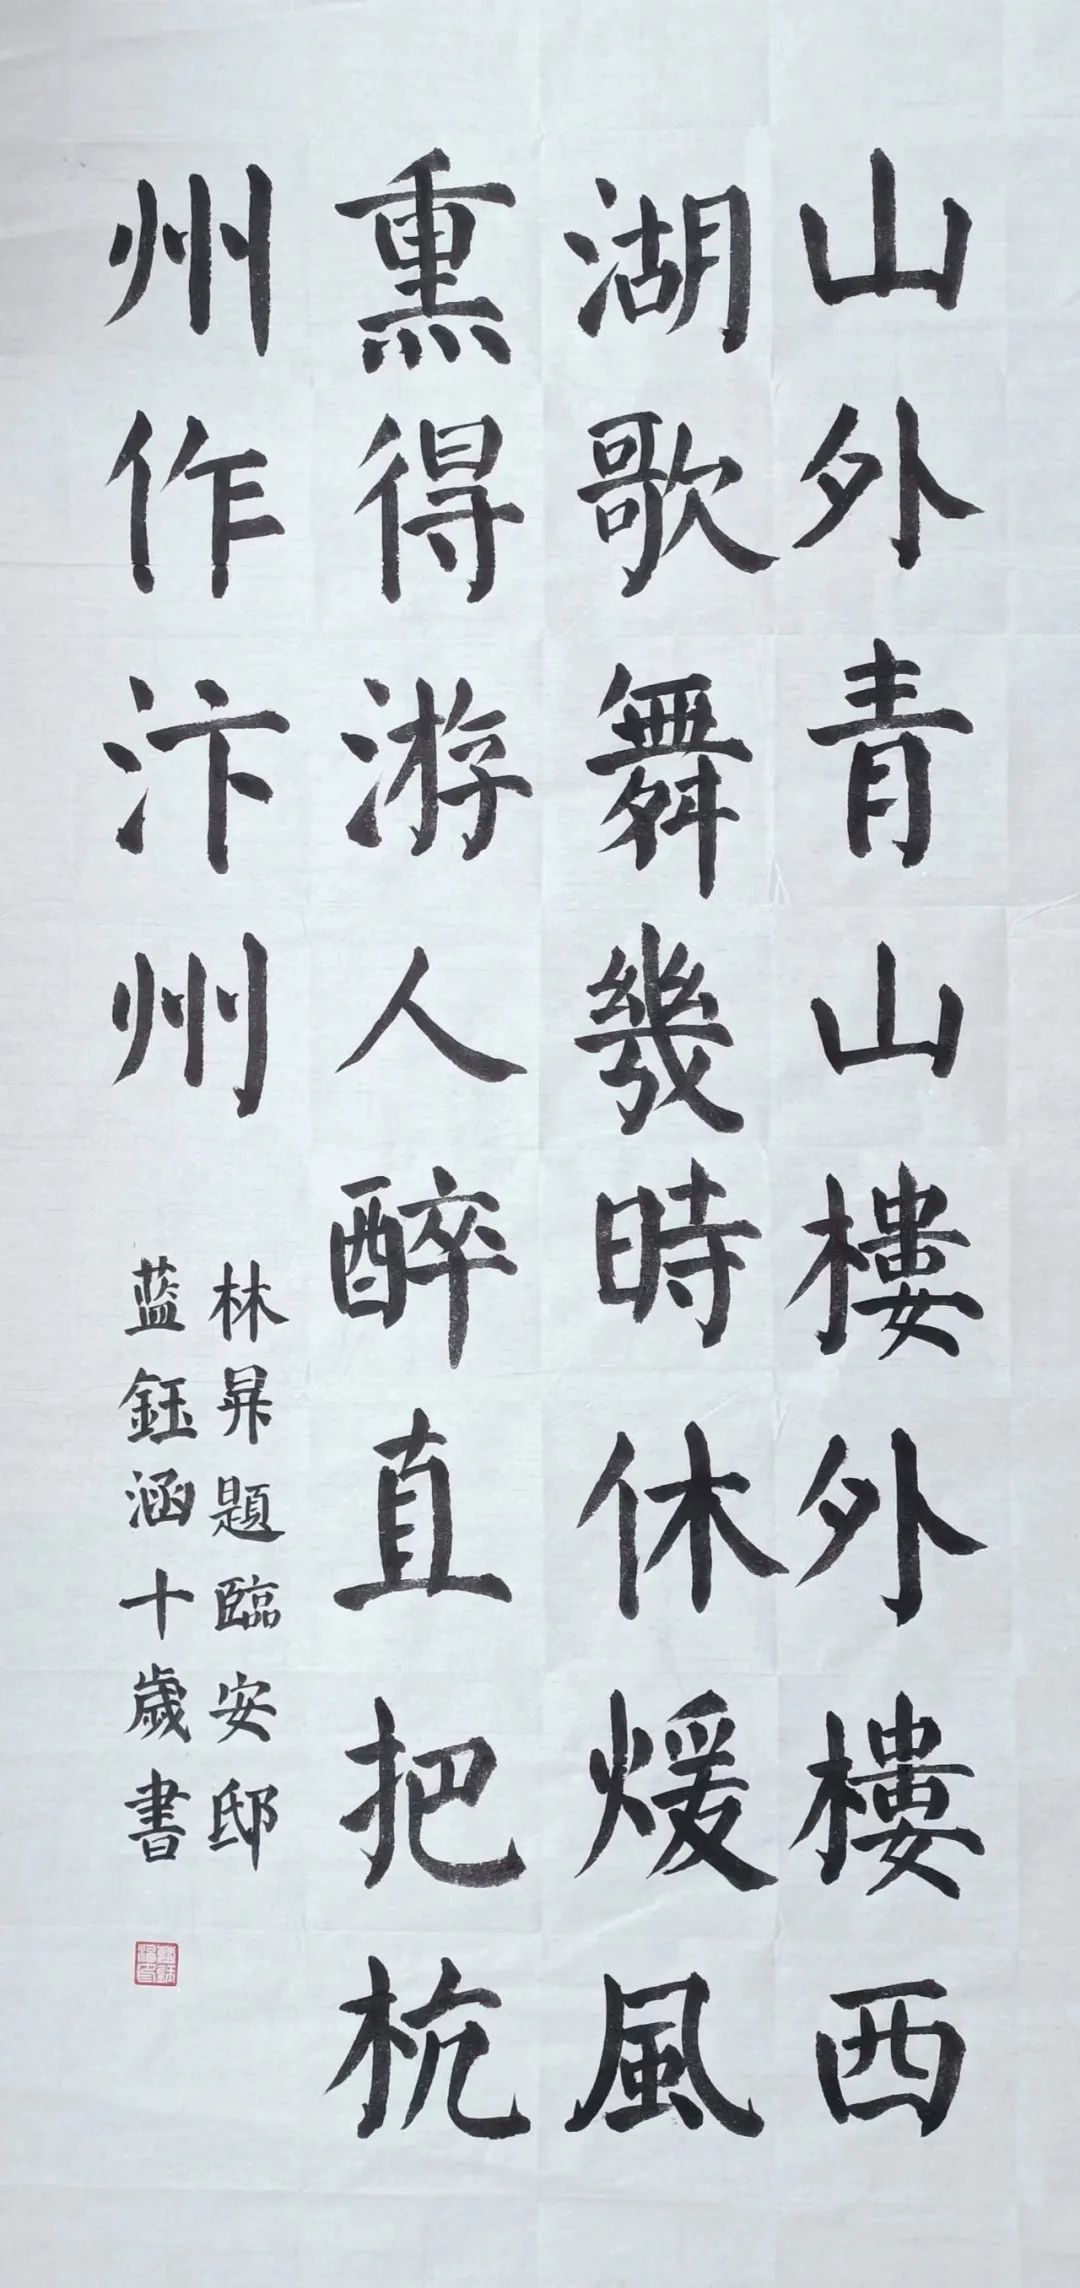 山外青山樓外樓西
湖歌舞幾時休煖風
熏得游人醉直把杭
州作汴州
林昇題臨安邸
藍鈺涵十歲書